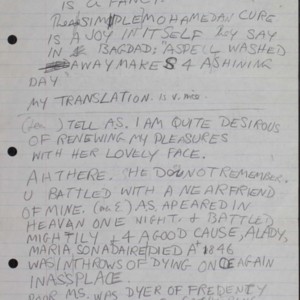 IS A FANCY.
THE A SIMPLE MOHAMEDAN CURE
IS A JOY IN ITSELF THEY SAY
IN BAGDAD; "A SPELL WASHED
AWAY MAKES 4 A SHINING
DAY"
MY TRANSLATION IS V. NICE.
) TELL AS. I AM QUITE DESIROUS
OF RENEWING MY PLEASURES
WITH HER LOVELY FACE.
AH THERE. HE DO U NOT REMEMBER.
U BATTLED WITH A NEAR FRIEND
OF MINE. (ME) AS, APEARED IN
HEAVAN ONE NIGHT. & BATTLED
MIGHTILY 4 A GOOD CAUSE, A LADY,
MARIA, SONADAIRE DIED At 1846
WAS IN THROWS OF DYING ONCE AGAIN
IN ASSPLACE.
POOR MS. WAS DYER OF FREDENTY